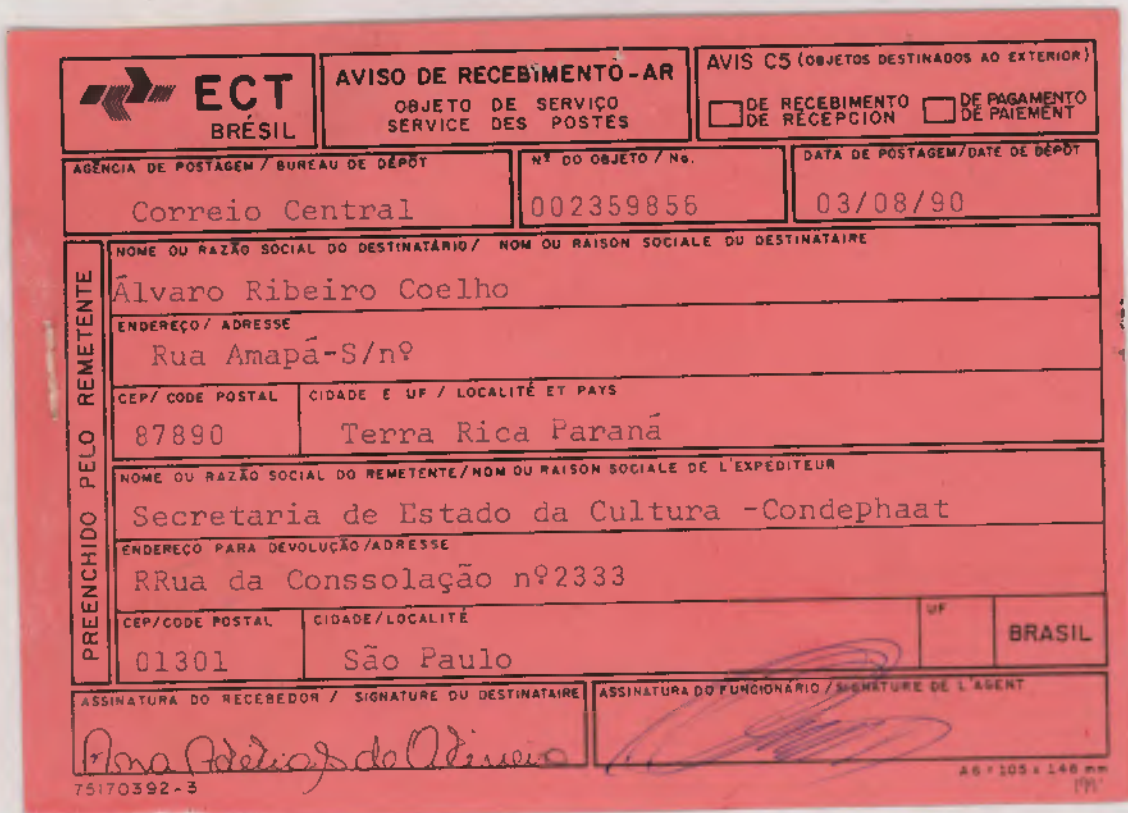 ECT
BRÉSIL
AVISO DE RECEBIMENTO-AR
OBJETO DE SERVIÇO
SERVICE DES POSTES
AVIS C5 (OBJETOS DESTINADOS AO EXTERIOR)
DE RECEBIMENTO
DE RÉCEPCION
DE PAGAMENTO
DE PAIEMENT
AGÊNCIA DE POSTAGEM / BUREAU DE DÉPÔT
Correio Central
Nº DO OBJETO / No.
002359856
DATA DE POSTAGEM/DATE DE DÉPÔT
03/08/90
PREENCHIDO PELO REMETENTE
NOME OU RAZÃO SOCIAL DO DESTINATÁRIO/ NOM OU RAISON SOCIALE DU DESTINATAIRE
Álvaro Ribeiro Coelho
ENDEREÇO/ ADRESSE
Rua Amapá-S/nº
CEP/ CODE POSTAL
87890
CIDADE E UF / LOCALITÉ ET PAYS
Terra Rica Paraná
NOME OU RAZÃO SOCIAL DO REMETENTE/NOM OU RAISON SOCIALE DE L'EXPÉDITEUR
Secretaria de Estado da Cultura -Condephaat
ENDEREÇO PARA DEVOLUÇÃO/ADRESSE
RRua da Conssolação nº2333
CEP/CODE POSTAL
01301
CIDADE/LOCALITÉ
São Paulo
UF
BRASIL
ASSINATURA DO RECEBEDOR / SIGNATURE DU DESTINATAIRE
Ana
de
ASSINATURA DO FUNCIONÁRIO/SIGNATURE DE L'AGENT
75170392-3
A6 = 105 x 148 mm